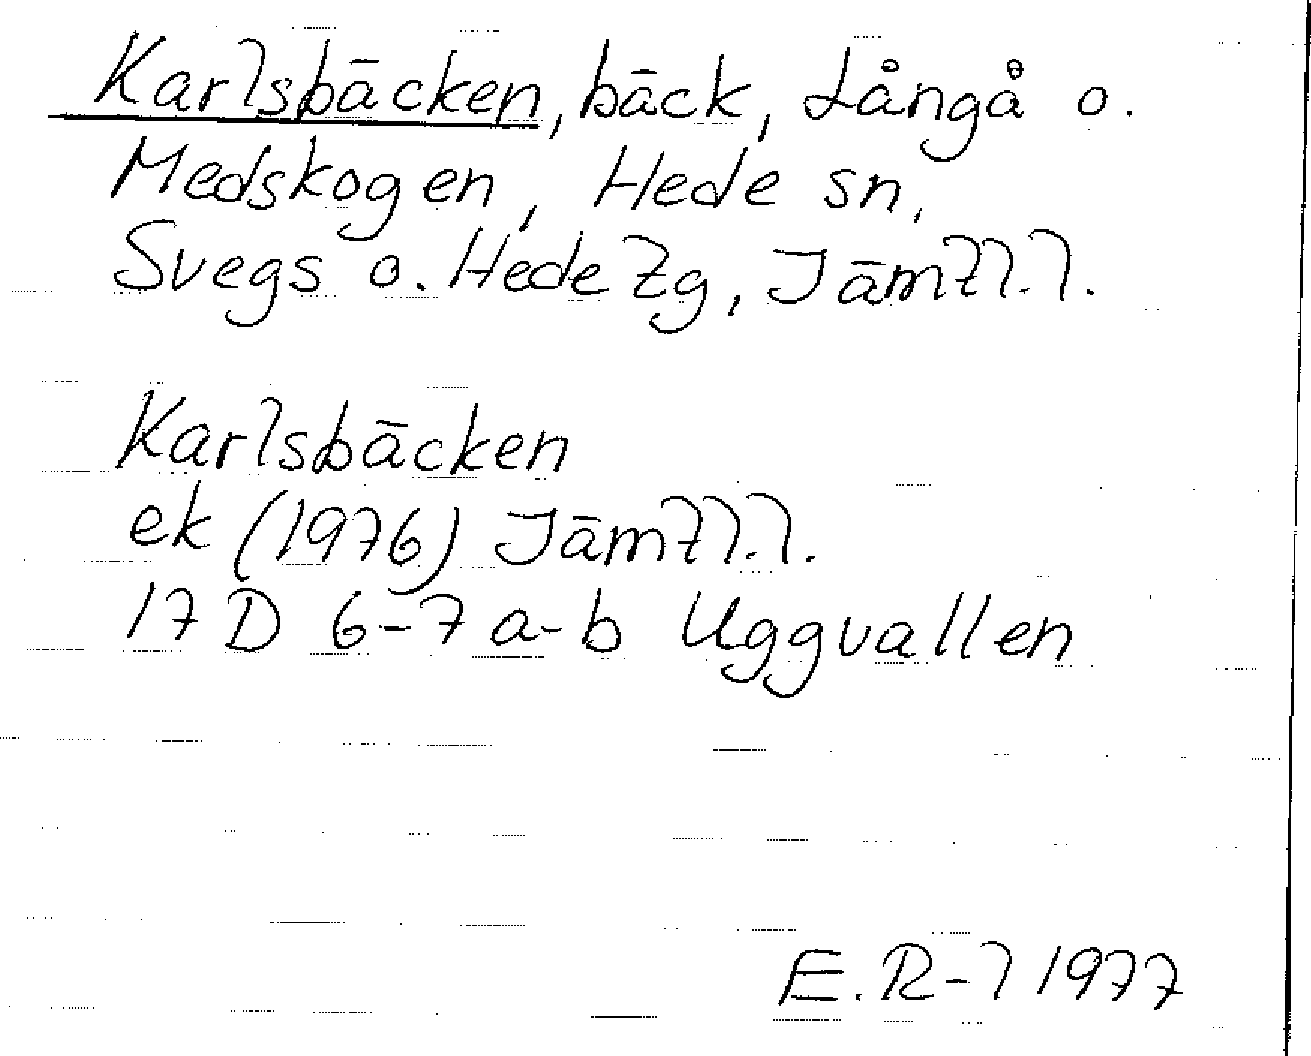 Karlsbäcken, bäck, Långå o.
Medskogen, Hede sn,
Svegs o. Hede tg, Jämtl.l.
Karlsbäcken
ek (1976) Jämtl.l.
17 D 6-7 a-b Uggvallen
E.R-l 1977